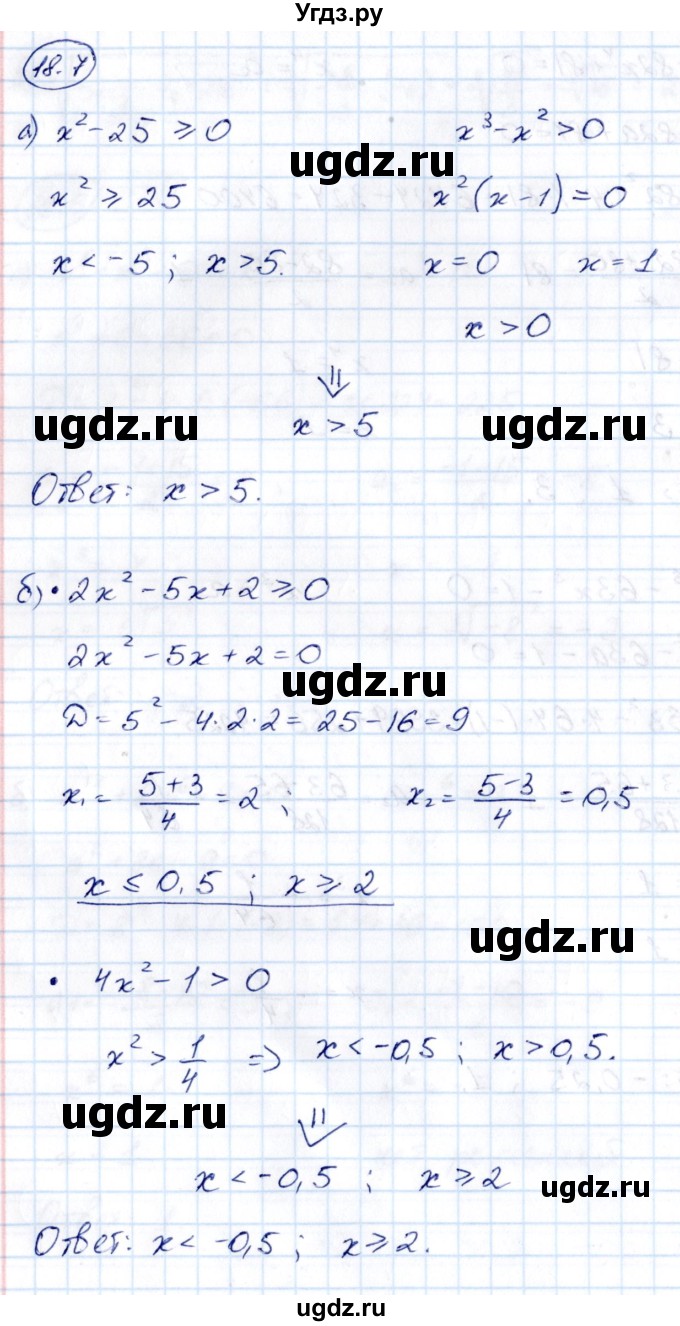 Угдз.ру
18.7
а) x² - 25 ⩾ 0    x³ - x² > 0
ugdz.ru
x² ⩾ 25    x²(x - 1) = 0
x < -5 ; x > 5.    x = 0    x = 1
x > 0
⇓
ugdz.ru    x > 5    ugdz.ru
Ответ: x > 5.
б) • 2x² - 5x + 2 ⩾ 0
2x² - 5x + 2 = 0
ugdz.ru
D = 5² - 4·2·2 = 25 - 16 = 9
x₁ = (5+3)/4 = 2 ;    x₂ = (5-3)/4 = 0,5
x ≤ 0,5 ; x ⩾ 2
ugdz.ru
• 4x² - 1 > 0
x² > 1/4 => x < -0,5 ; x > 0,5.
ugdz.ru
⇓
x < -0,5 ; x ⩾ 2
ugdz.ru
Ответ: x < -0,5 ; x ⩾ 2.
ugdz.ru